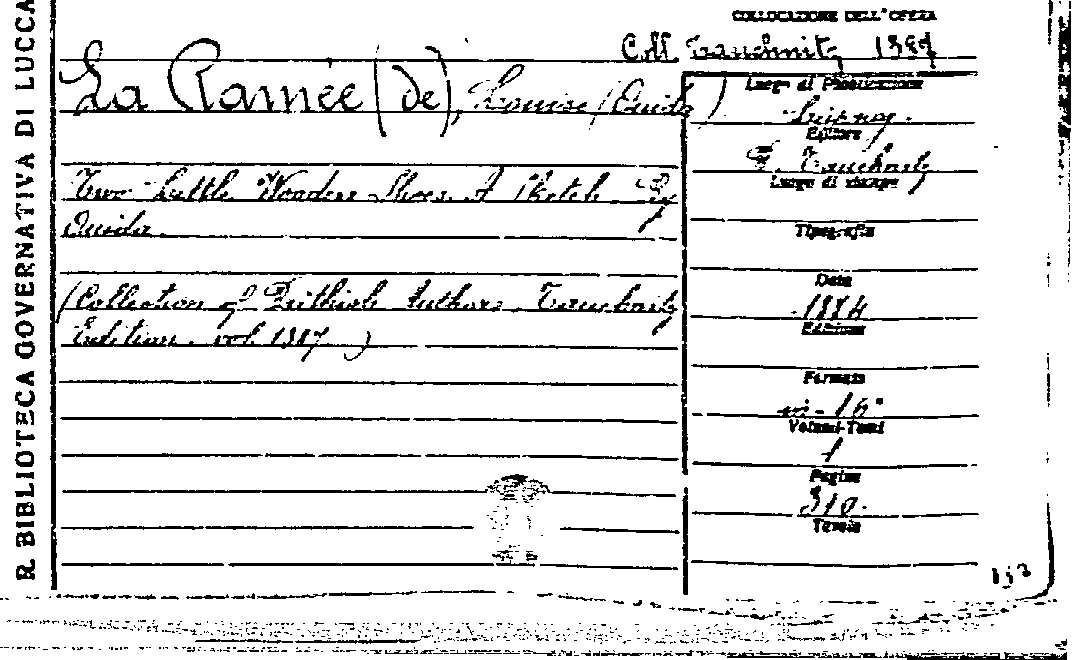 R. BIBLIOTECA GOVERNATIVA DI LUCCA
COLLOCAZIONE DELL'OPERA
Coll. Tauchnitz 1387
La Ramée (de), Louise (Ouida)
Two Little Wooden Shoes. A Sketch By
Ouida.
(Collection of British Authors. Tauchnitz
Edition. vol. 1387.)
Luogo di Pubblicazione
Leipzig.
Editore
B. Tauchnitz
Luogo di stampa
Tipografia
Data
1884
Edizione
Formato
in-16°
Volumi-Tomi
1
Pagine
310.
Tavole